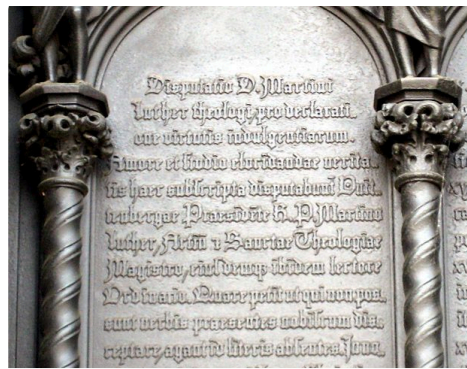 Disputatio D. Martini
Luther theologi, pro declarati-
one virtutis indulgentiarum.
Amore et studio elucidandae verita-
tis haec subscripta disputabunt Vuit-
tenbergae, Praesidēte R. P. Martino
Luther, Artiū & Sanctae Theologiae
Magistro, eiusdemq; ibidem lectore
Ordinario. Quare petit ut qui non pos-
sunt verbis praesentes nobiscum dis-
ceptare, agant id literis absentes. In no-